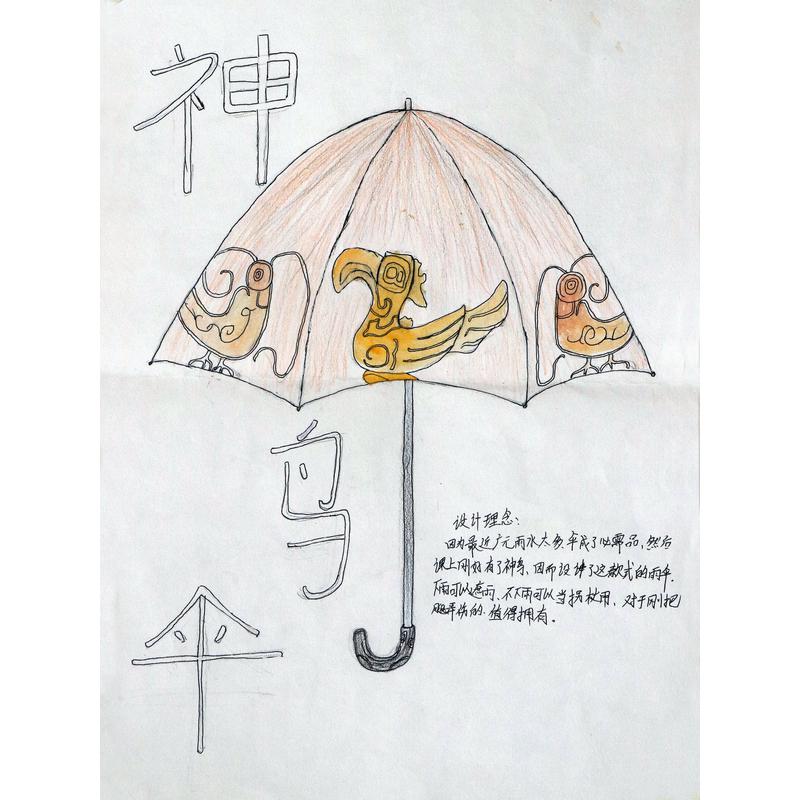 神
鸟
伞
设计理念：
因为最近广元雨水太多，伞成了必需品，然后
课上刚好有了神鸟，因而设计了这款式的雨伞.
下雨可以遮雨、不下雨可以当拐杖用，对于刚把
腿弄伤的.值得拥有。